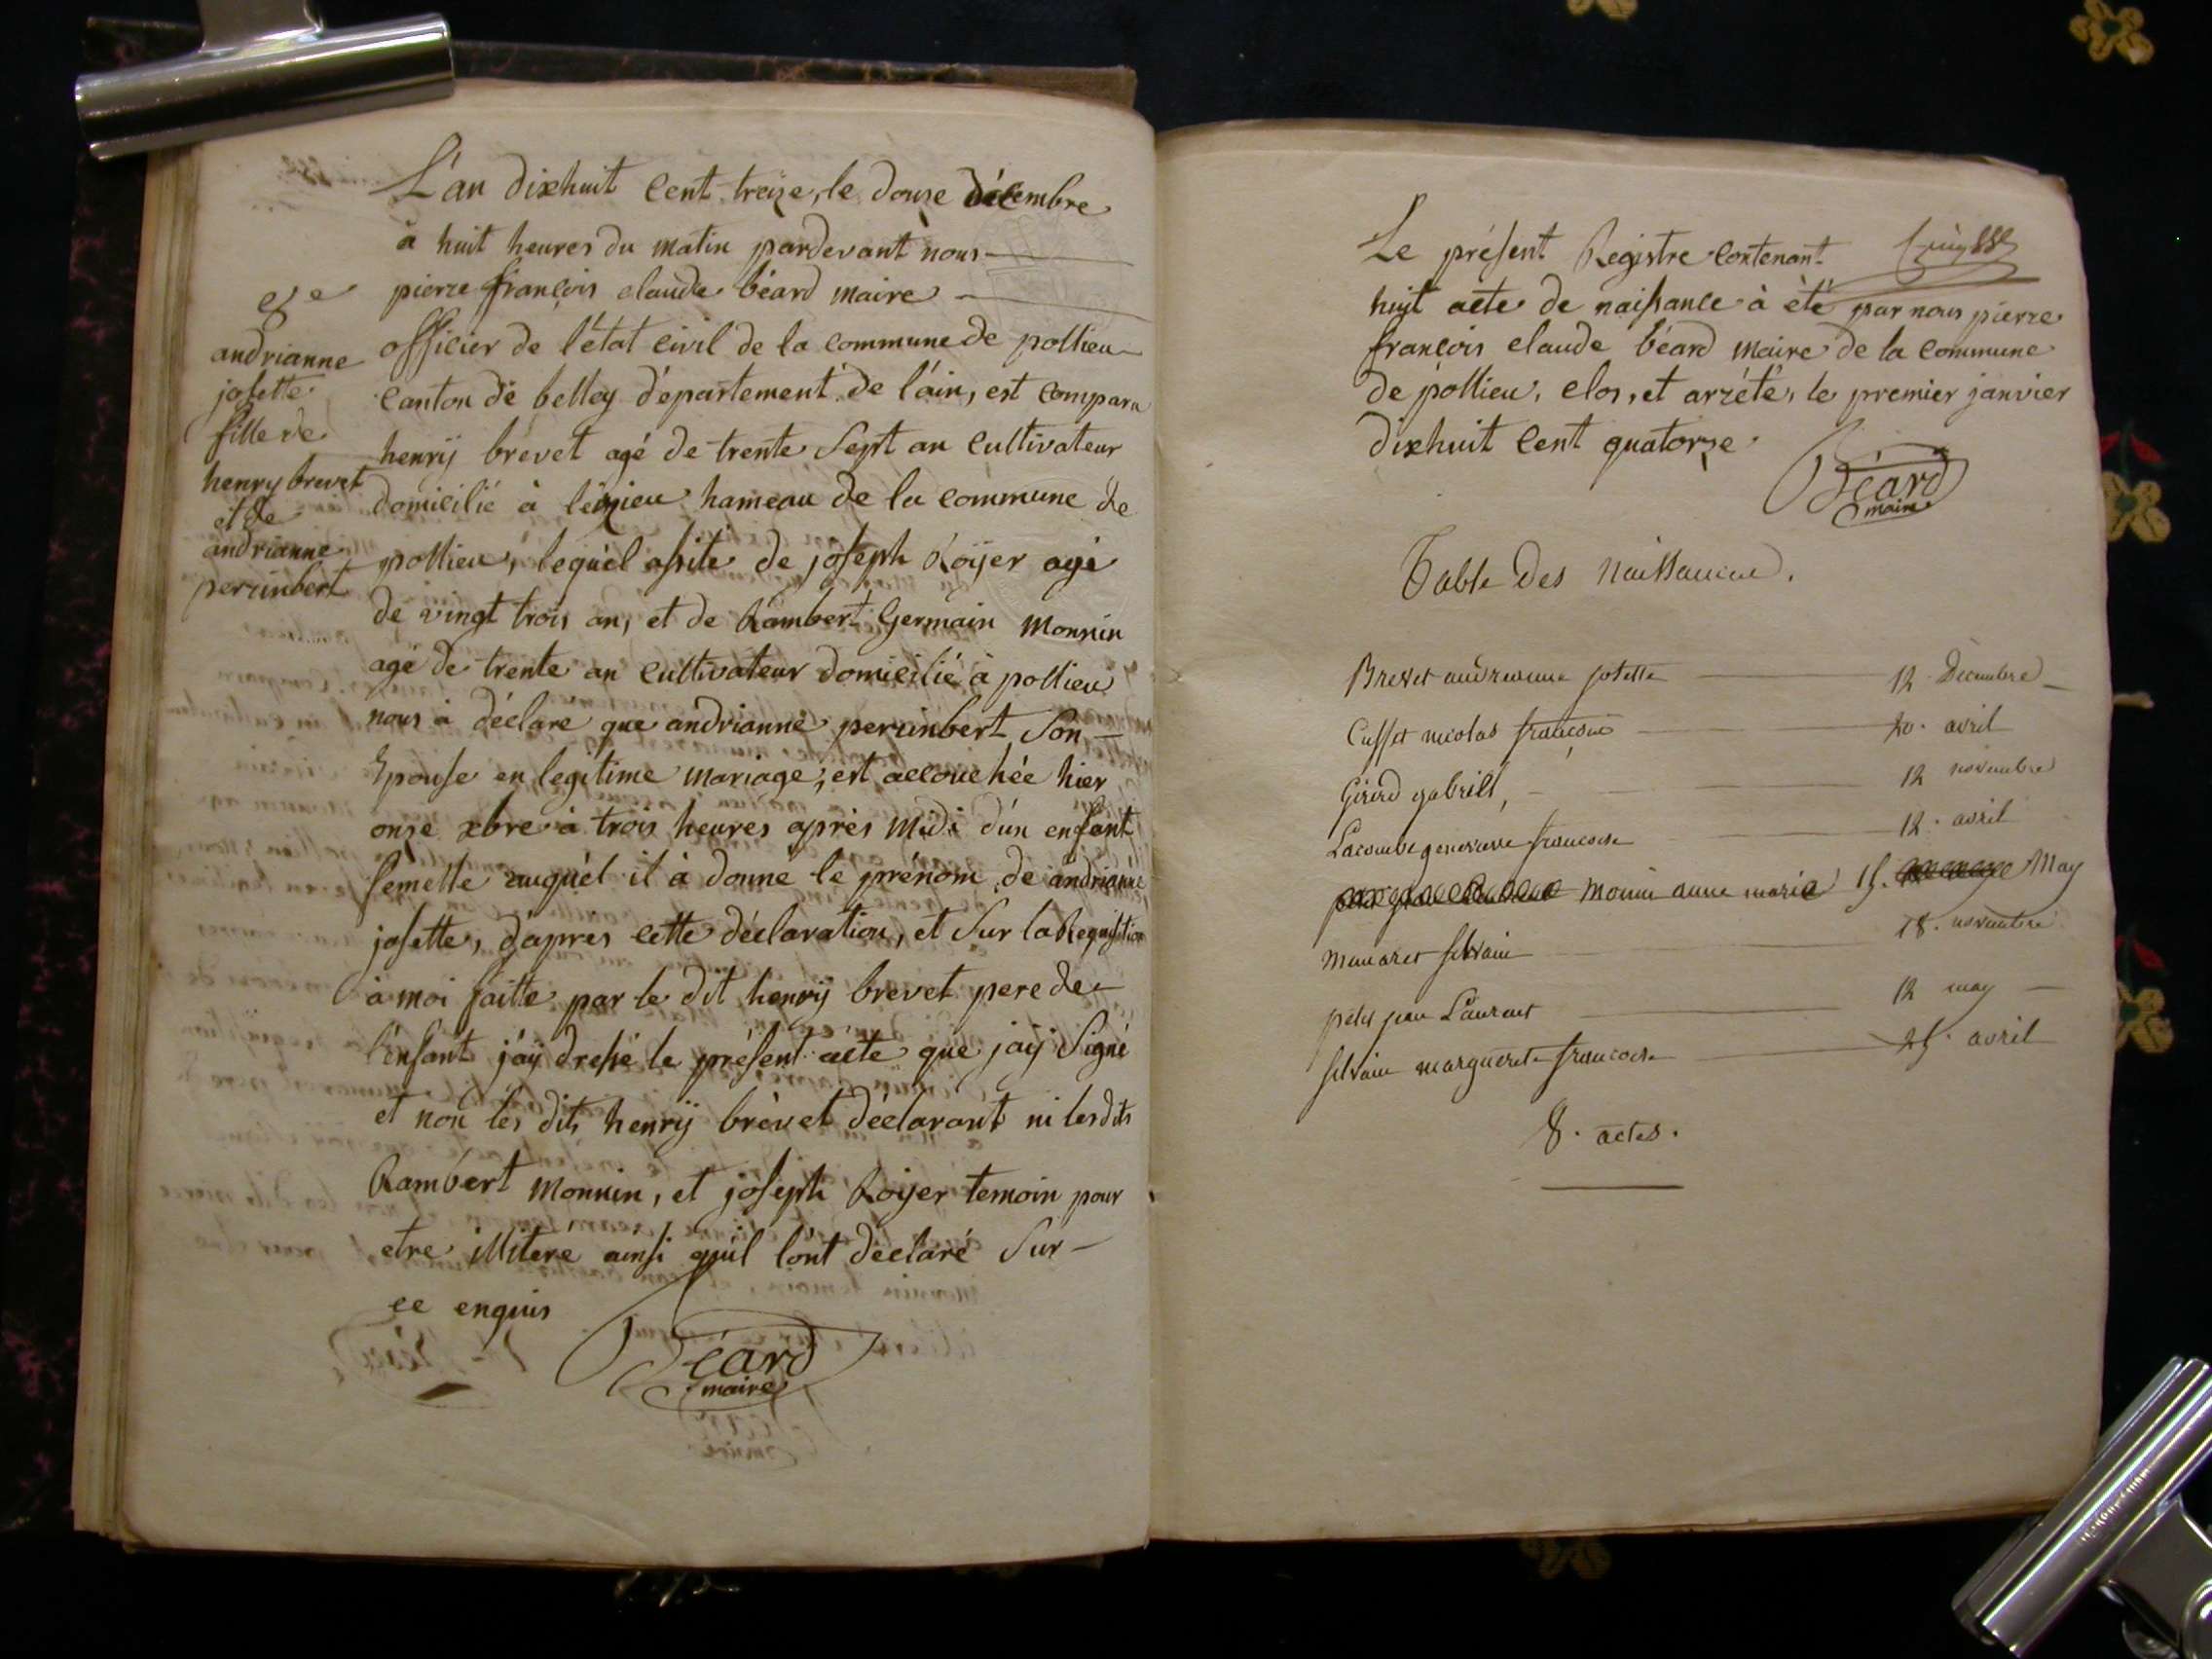 L'an dixhuit cent treize, le douze décembre
à huit heures du matin pardevant nous
pierre françois claude béard maire
officier de l'état civil de la commune de pollieu
canton de belley département de l'ain, est comparu
henrÿ brevet agé de trente sept an cultivateur
domicilié à hameau de la commune de
pollieu, lequel assité de joseph Roÿer agé
de vingt trois an, et de Rambert Germain monnin
agé de trente an cultivateur domicilié à pollieu
nous à déclare que andrianne perrinbert son
Epouse en legitime mariage, est accouchée hier
onze xbre à trois heures après midi d'un enfant
femelle auquel il à donné le prénom de andrianne
josette, d'apres cette déclaration, et sur la Requisition
à moi faitte par le dit henrÿ brevet pere de
l'enfant j'aÿ dressé le présent acte que jaÿ signé
et non les dits henrÿ brevet déclarant ni les dits
Rambert monnin, et joseph Roÿer temoin pour
etre illitere ainsi qu'il l'ont déclaré sur
ce enquis
Béard
maire
8e
andrianne
josette
fille de
henry brevet
et de
andrianne
perrinbert
Le présent Registre contenant
huit acte de naissance à été par nous pierre
françois claude béard maire de la commune
de pollieu, clos, et arrété, le premier janvier
dixhuit cent quatorze
Béard
maire
Table des naissances.
Brevet andrianne josette 12 Décembre
Cusset nicolas françois 20. avril
Girerd gabriell 12 novembre
Lacombe genevieve francoise 12. avril
monin anne marie 15. May
silvain 18. novembre
petit jean Laurent 12 may
silvain marguerete francoise 25. avril
8. actes.